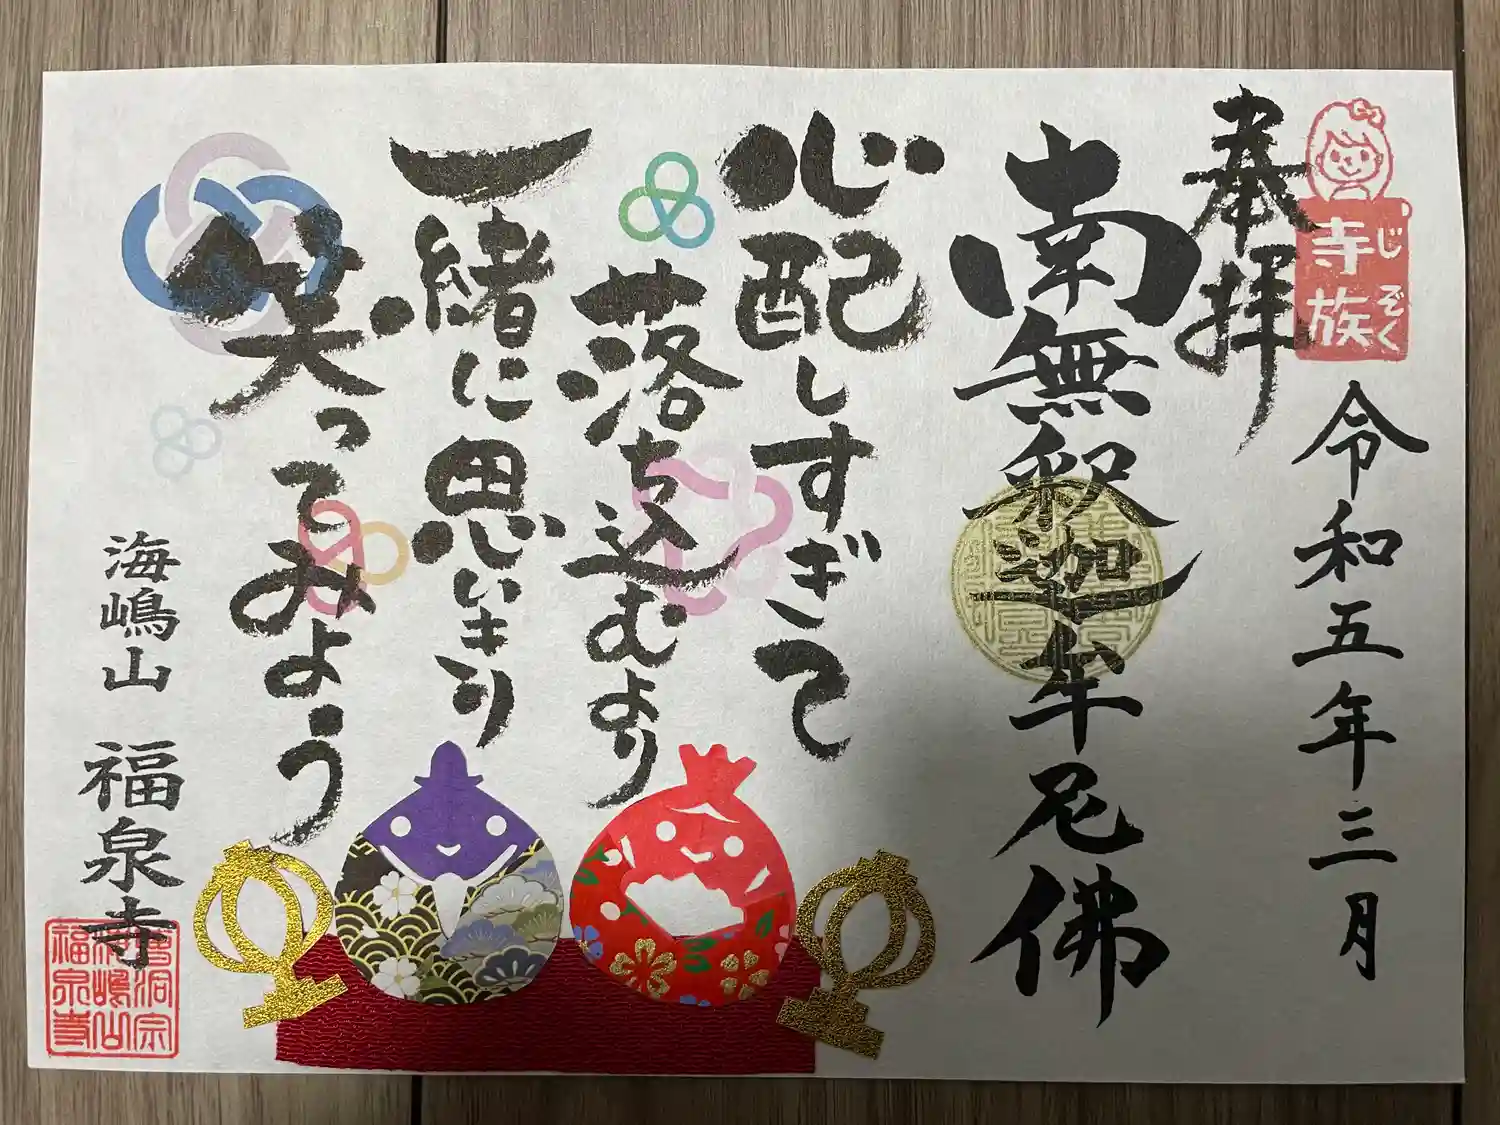 寺族
じぞく
令和五年三月
奉拝
南無釈迦牟尼佛
心配しすぎて
落ち込むより
一緒に思いきり
笑ってみよう
海嶋山 福泉寺
曹洞宗
海嶋山
福泉寺